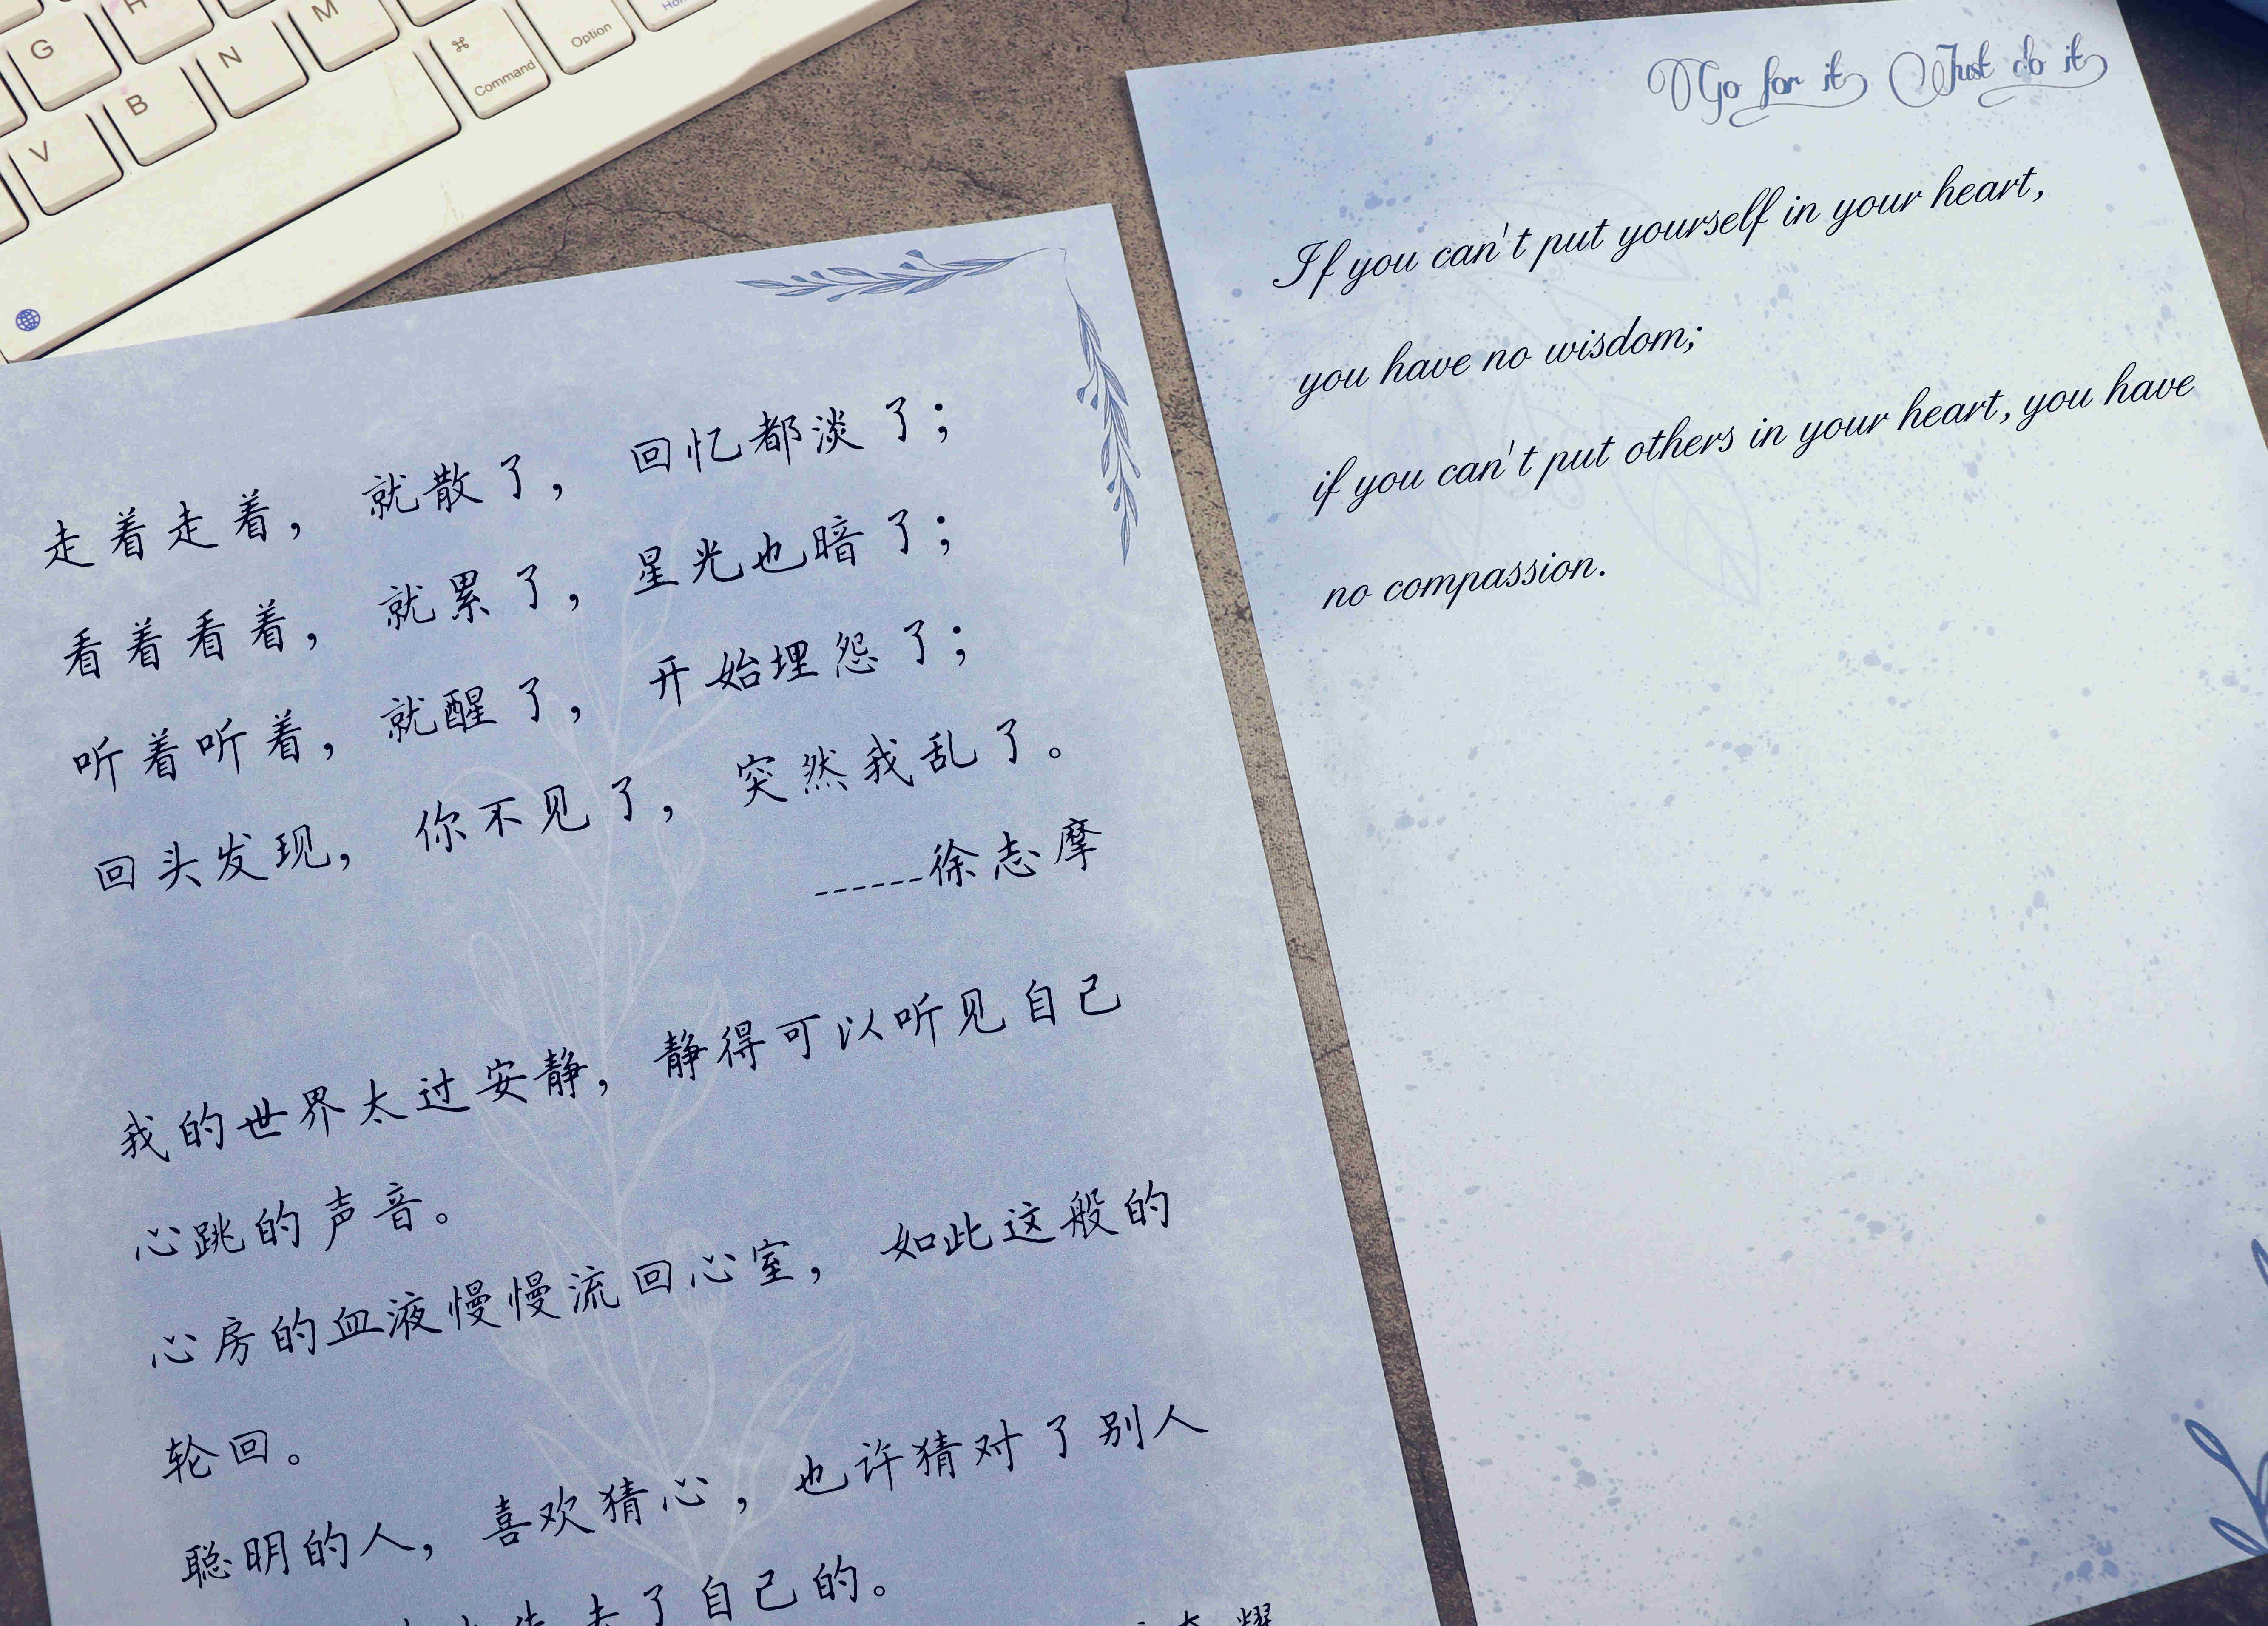 G H
V B N M
⌘ Command Option
走着走着， 就散了， 回忆都淡了；
看着看着， 就累了， 星光也暗了；
听着听着， 就醒了， 开始埋怨了；
回头发现， 你不见了， 突然我乱了。
------徐志摩
我的世界太过安静，静得可以听见自己
心跳的声音。
心房的血液慢慢流回心室， 如此这般的
轮回。
聪明的人，喜欢猜心，也许猜对了别人
了自己的。
Go for it Just do it
If you can't put yourself in your heart,
you have no wisdom;
if you can't put others in your heart, you have
no compassion.